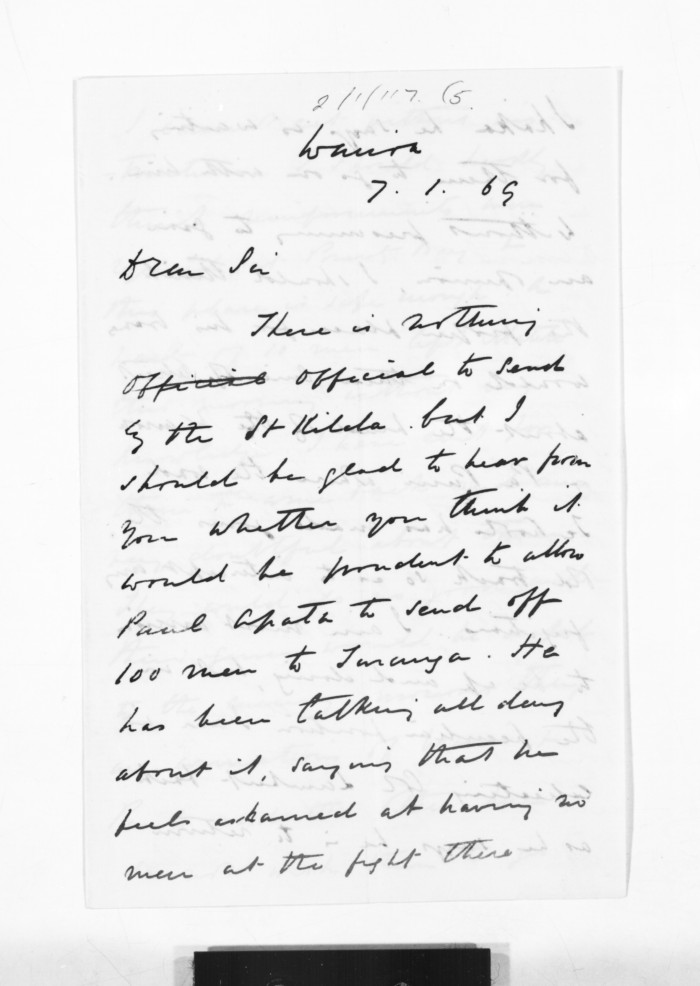 Wairoa
7. 1. 69
Dear Sir
There is nothing
official official to send
by the St Kilda. but I
should be glad to hear from
you whether you think it
would be prudent to allow
Paul Apata to send off
100 men to Turanga. He
has been talking all day
about it, saying that he
feels ashamed at having no
men at the fight there